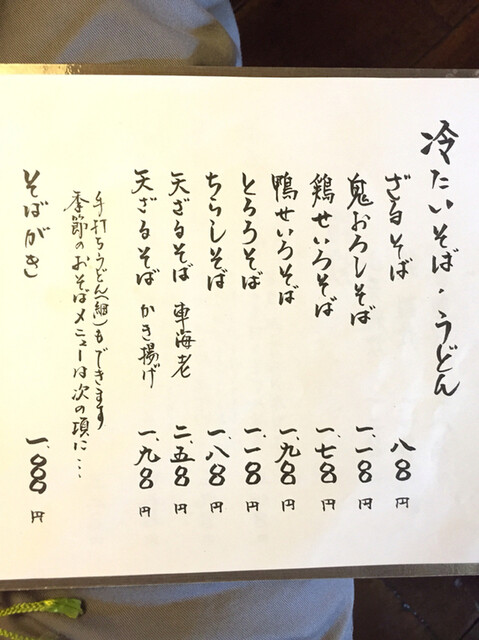 冷たいそば・うどん
ざるそば 八〇〇円
鬼おろしそば 一、一〇〇円
鶏せいろそば 一、七〇〇円
鴨せいろそば 一、九〇〇円
とろろそば 一、一〇〇円
ちらしそば 一、八〇〇円
天ざるそば 車海老 二、五〇〇円
天ざるそば かき揚げ 一、九〇〇円
手打ちうどん(細)もできます
季節のおそばメニューは次の項に…
そばがき 一、〇〇〇円